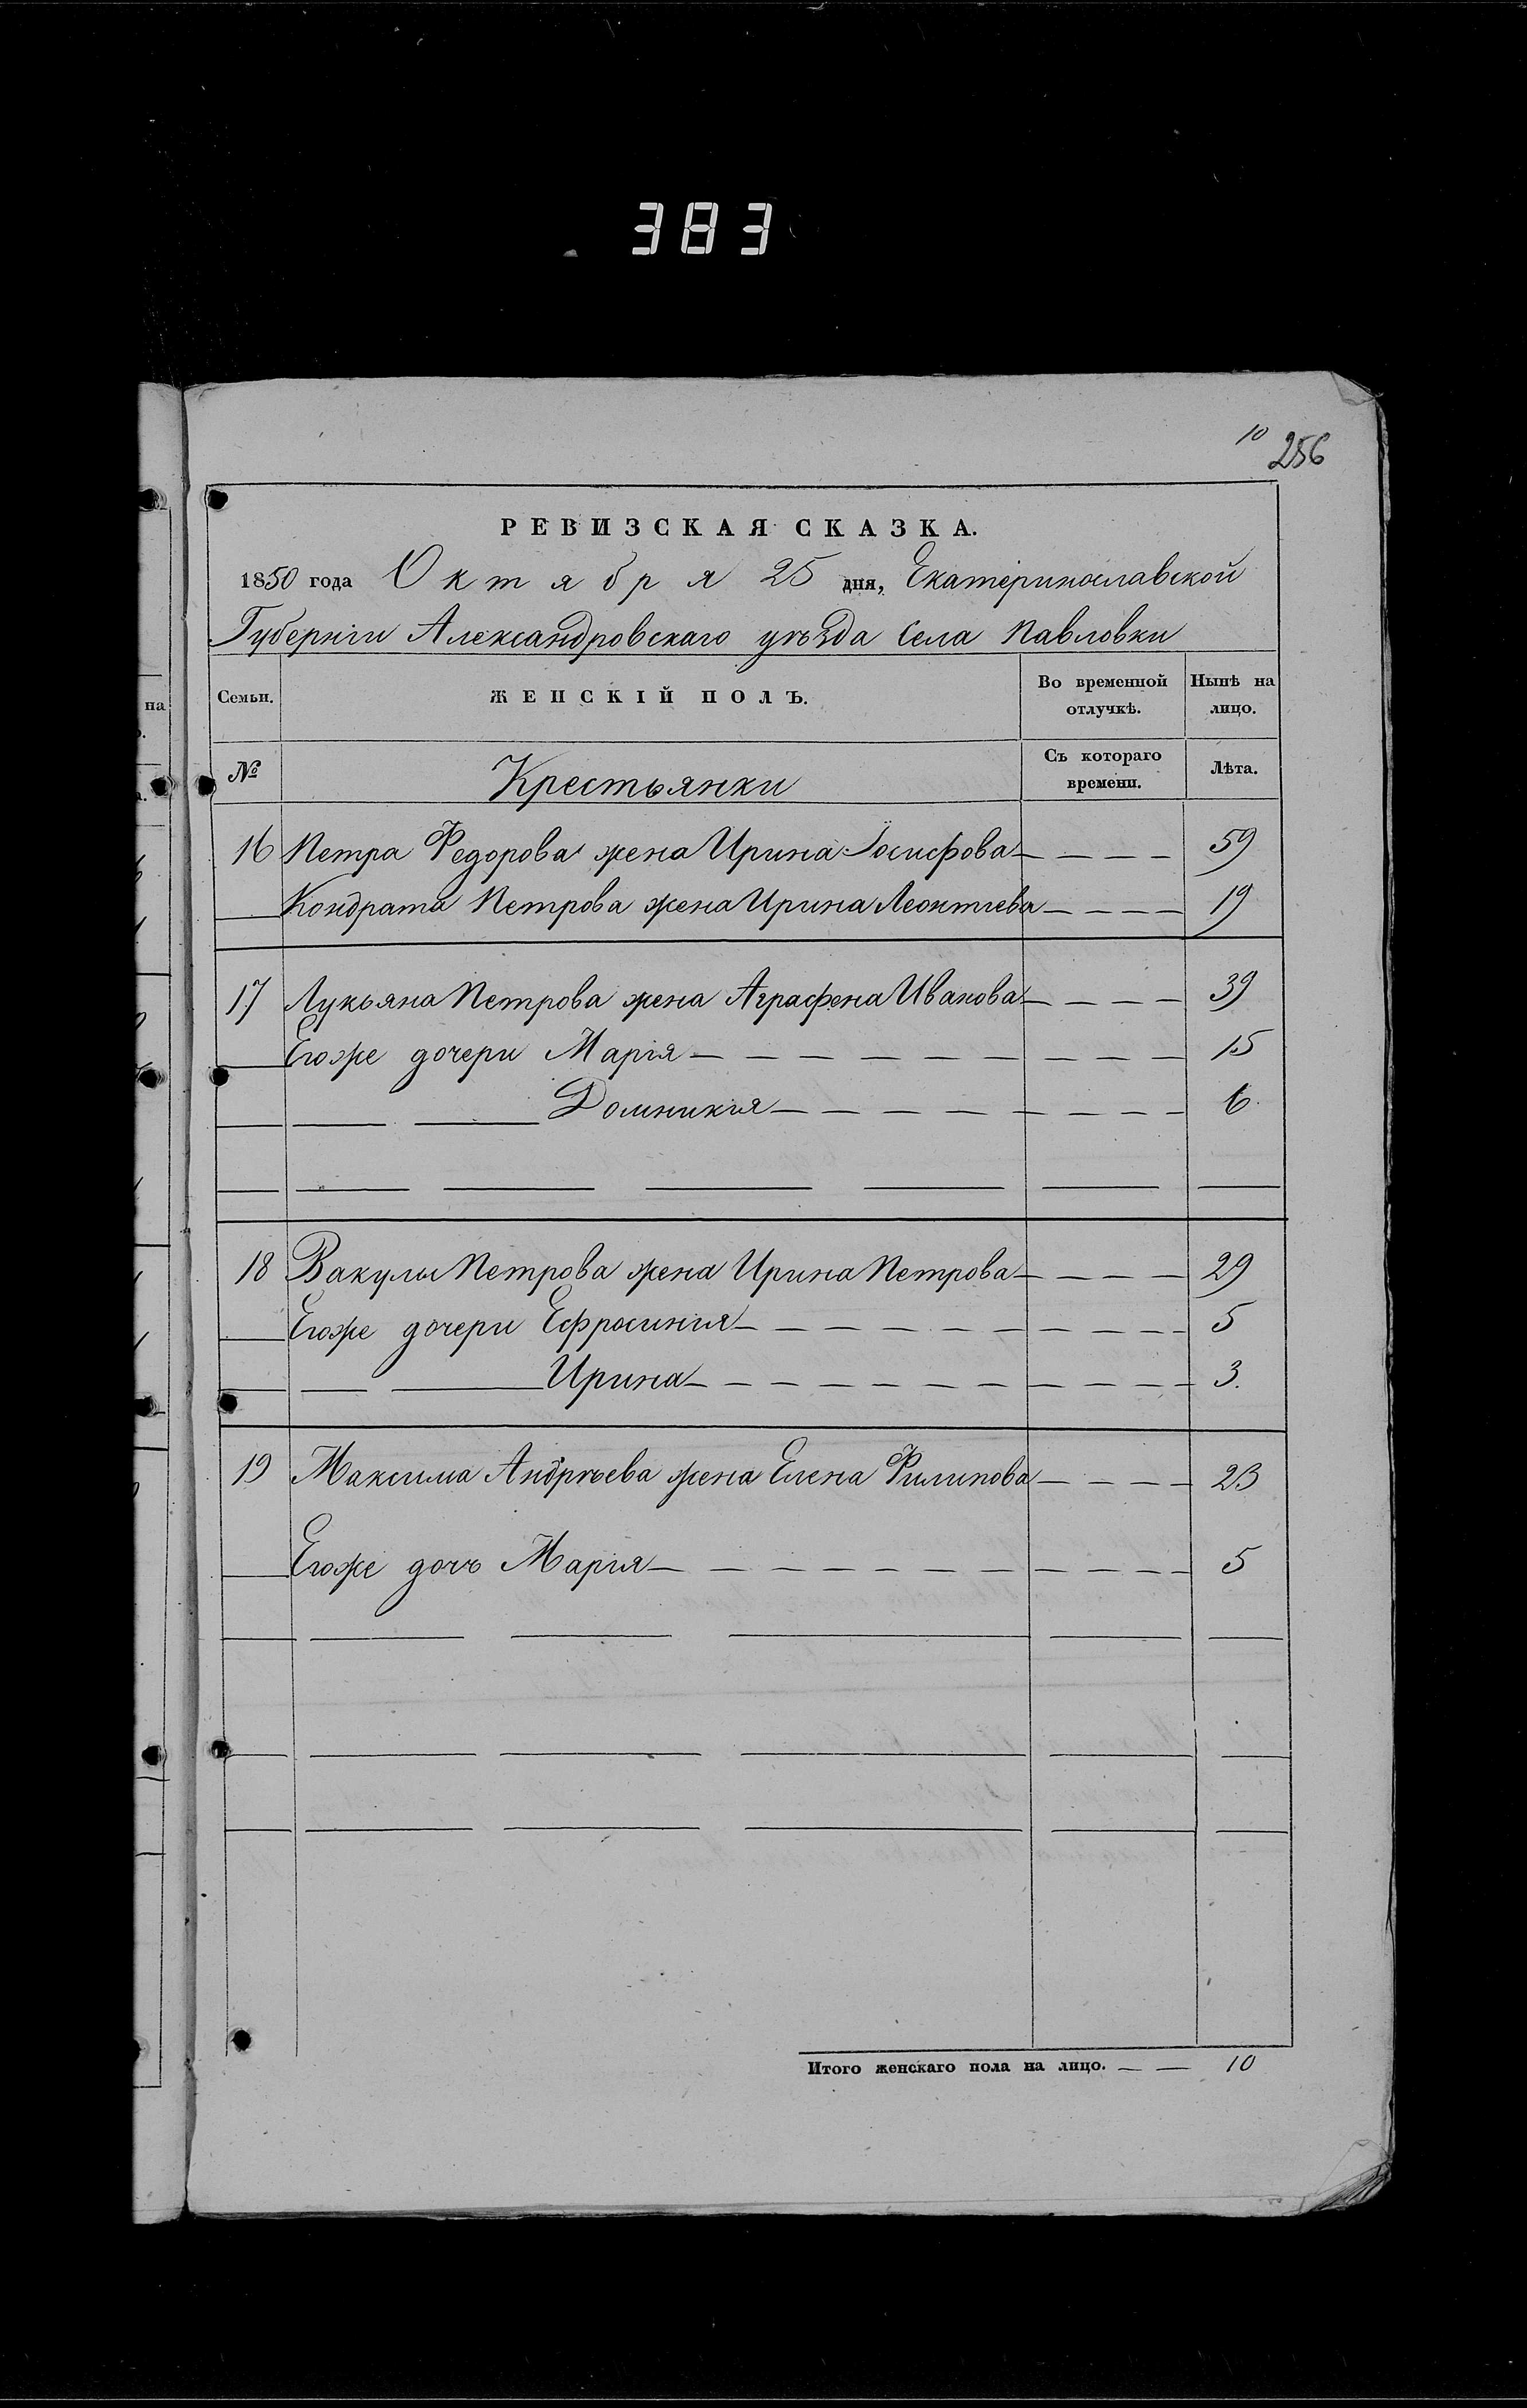 383
10 256
РЕВИЗСКАЯ СКАЗКА.
1850 года Октября 25 дня, Екатеринославской
Губерніи Александровскаго уѣзда Села Павловки
Семьи. ЖЕНСКІЙ ПОЛЪ. Во временной отлучкѣ. Нынѣ на лицо.
№ Крестьянки Съ котораго времени. Лѣта.
16 Петра Федорова жена Ирина Іосифова — — — — 59
Кондрата Петрова жена Ирина Леонтіева — — — — 19
17 Лукьяна Петрова жена Аграфена Иванова — — — — 39
Егоже дочери Марія — — — — — — — — — 15
Домникія — — — — — — — — — 6.
18 Вакулы Петрова жена Ирина Петрова — — — — 29
Егоже дочери Ефросинія — — — — — — — — — 5
Ирина — — — — — — — — — — 3.
19 Максима Андрѣева жена Елена Филипова — — — — 23
Егоже дочь Марія — — — — — — — — — — 5
Итого женскаго пола на лицо. — — 10
на